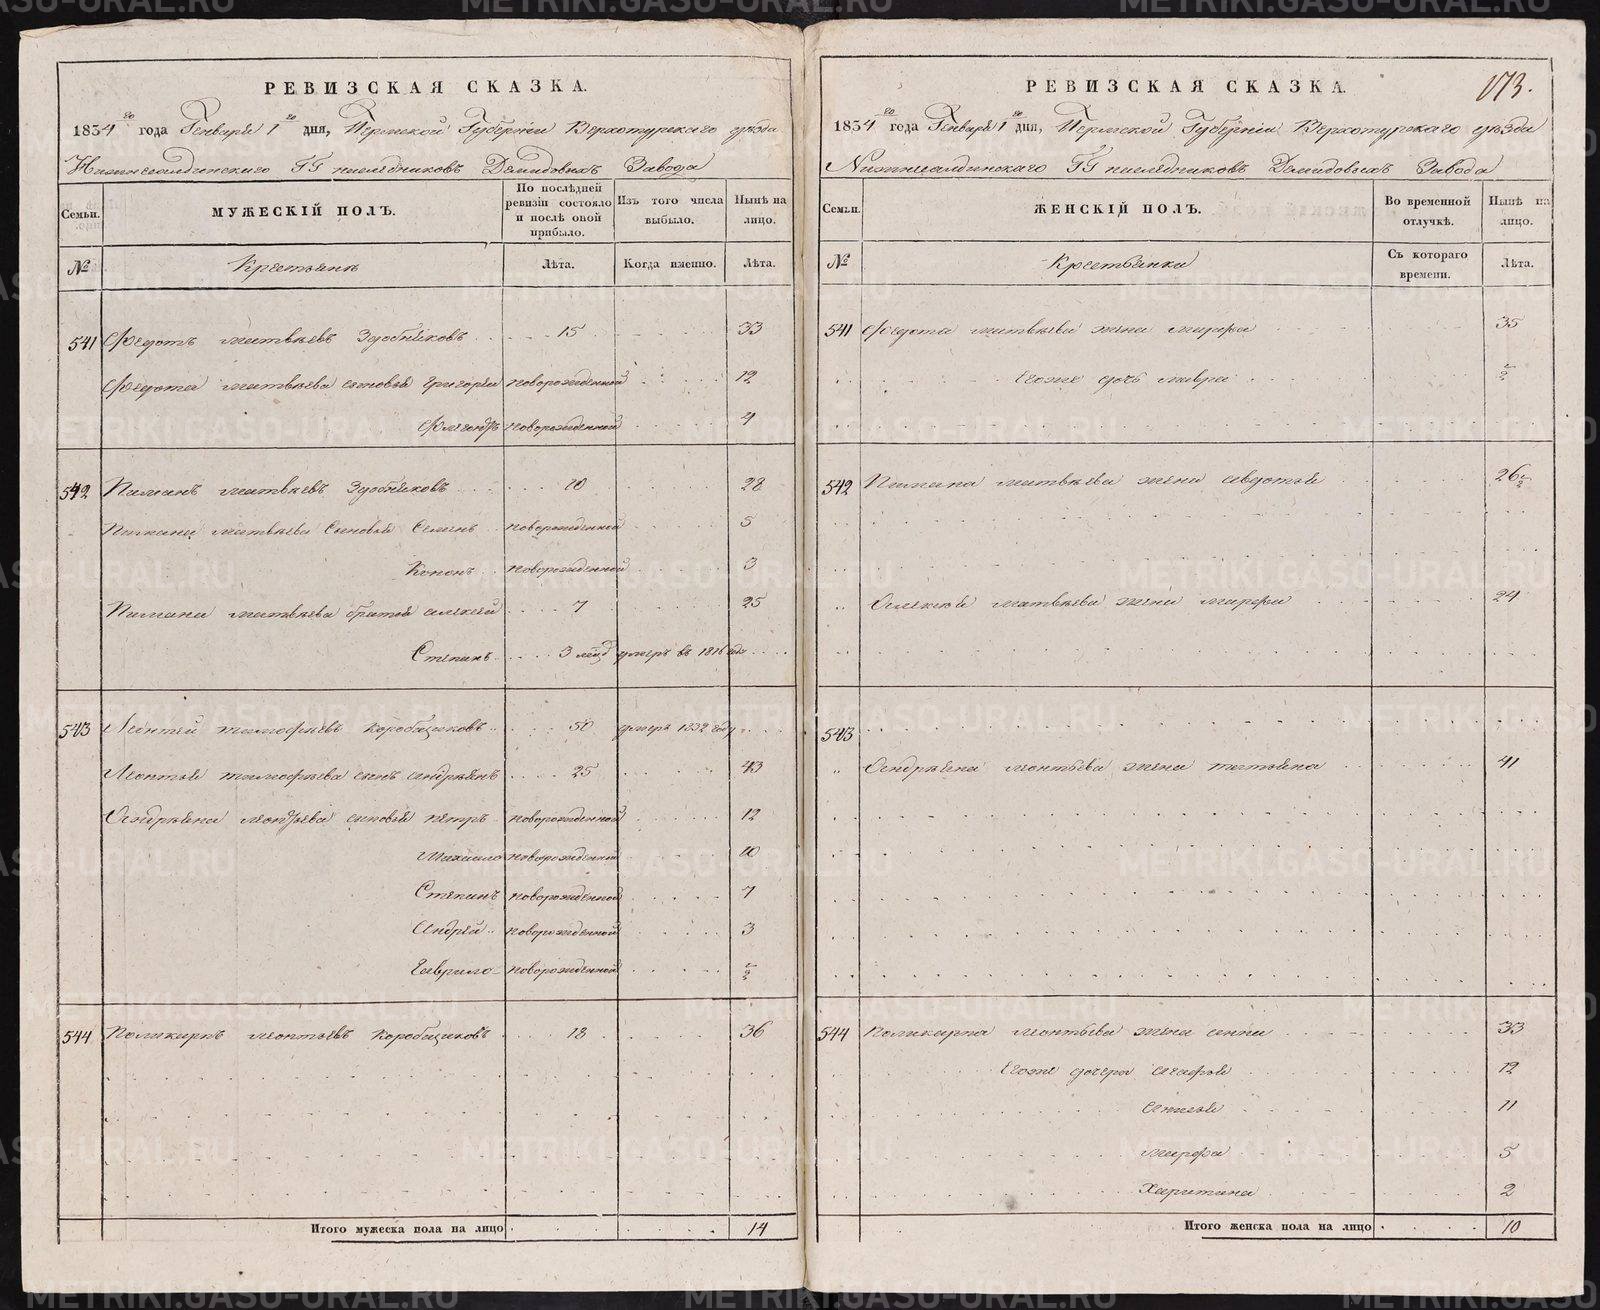 РЕВИЗСКАЯ СКАЗКА.
1834го года Генваря 1го дня, Пермской Губернии Верхотурскаго уезда
Нижнесалдинскаго ГГ наследниковъ Демидовыхъ Завода
Семьи.
МУЖЕСКІЙ ПОЛЪ.
По послѣдней ревизіи состояло и послѣ оной прибыло.
Изъ того числа выбыло.
Нынѣ на лицо.
№
Крестьяне
Лѣта.
Когда именно.
Лѣта.
541 Федотъ Матвеевъ Здобняковъ 15 33
Федота Матвеева сыновья Григорий новорожденной 12
новорожденной 4
542 Пиманъ Матвеевъ Здобняковъ 10 28
Пимана Матвеева сыновья Семенъ новорожденной 5
Кононъ новорожденной 3
Пимана Матвеева братья Алексей 7 25
Степанъ 3 умеръ въ 1816 году
543 Леонтей Тимофеевъ Коробщиковъ 50 умеръ 1832 году
Леонтья Тимофеева сынъ Андреянъ 25 43
Андреяна Леонтьева сыновья Петръ новорожденной 12
Михайло новорожденной 10
Степанъ новорожденной 7
Андрей новорожденной 3
Гаврило новорожденной ½
544 Поликарпъ Леонтьевъ Коробщиковъ 18 36
Итого мужеска пола на лицо 14
173.
РЕВИЗСКАЯ СКАЗКА.
1834го года Генваря 1го дня, Пермской Губернии Верхотурскаго уезда
Нижнесалдинскаго ГГ наследниковъ Демидовыхъ Завода
Семьи.
ЖЕНСКІЙ ПОЛЪ.
Во временной отлучкѣ.
Нынѣ на лицо.
№
Крестьянки
Съ котораго времени.
Лѣта.
541 Федота Матвеева жена Марфа 35
Егоже дочь Мавра ½
542 Пимана Матвеева жена Авдотья 26½
Алексея Матвеева жена Марфа 24
543
Андреяна Леонтьева жена Татьяна 41
544 Поликарпа Леонтьева жена Анна 33
Егоже дочери Агафья 12
11
Марфа 5
Харитина 2
Итого женска пола на лицо 10
METRIKI.GASO-URAL.RU